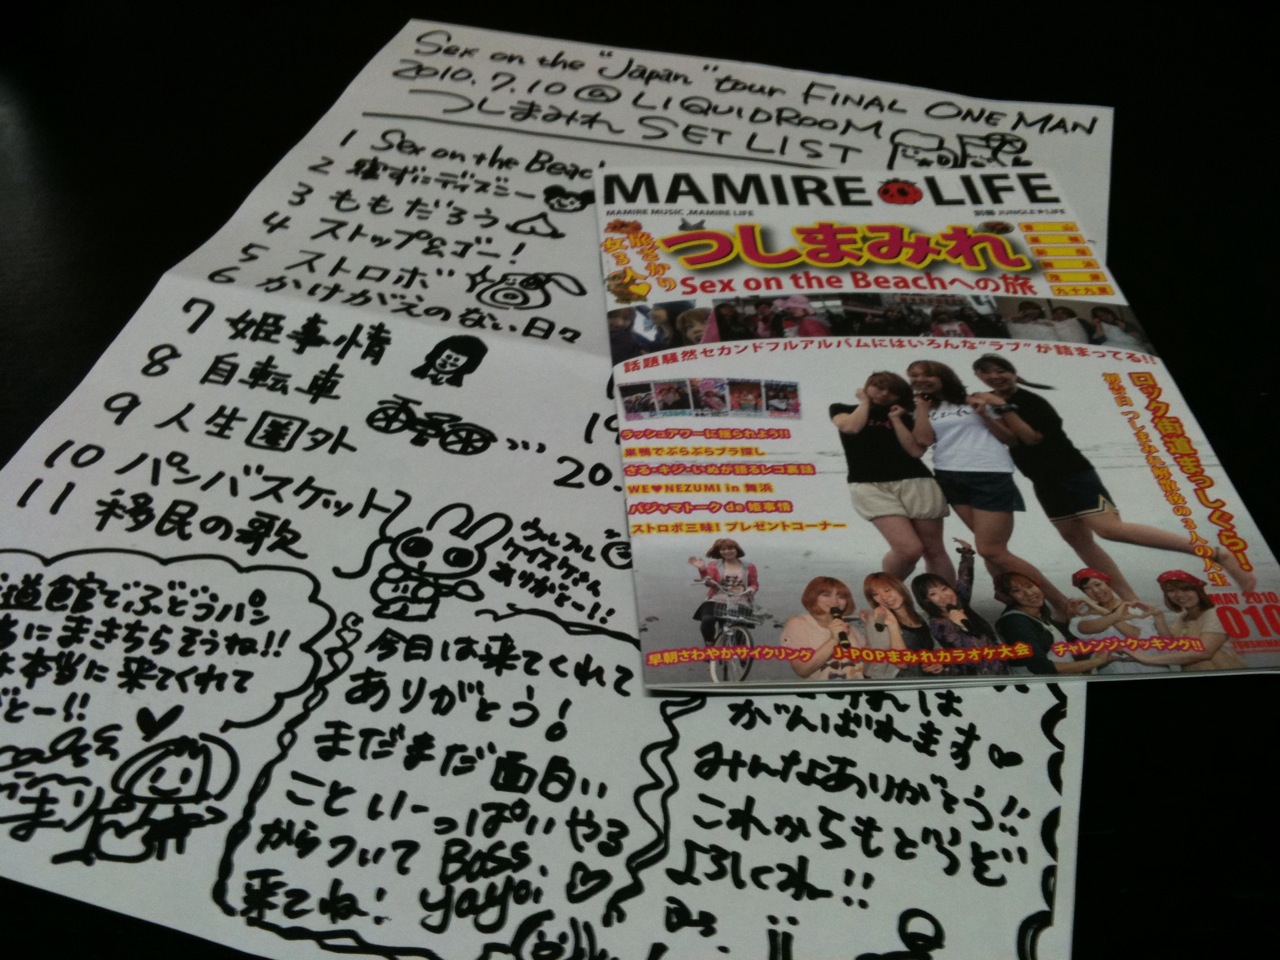 Sex on the "Japan" tour FINAL ONE MAN
2010.7.10@LIQUIDROOM
つしまみれ SET LIST
1 Sex on the Beac
2 寝ずにディズニー
3 ももだろう
4 ストップ&ゴー!
5 ストロボ
6 かけがえのない日々
7 姫事情
8 自転車
9 人生圏外
10 パンバスケット
11 移民の歌
19
20.
道館でぶどうパン
にまきちらそうね!!
本当に来てくれて
とー!!
まり
ウルフル
ケイスケさん
ありがとー!!
今日は来てくれて
ありがとう!
まだまだ面白い
こといーっぱいやる
からついて
来てね!
Boss.
yayoi
がんばれます♡
みんなありがとう!!
これからもどうぞ
よろしくね!!
MAMIRE LIFE
MAMIRE MUSIC ,MAMIRE LIFE
別冊 JUNGLE★LIFE
旅さかり
女3人
つしまみれ
Sex on the Beachへの旅
九十九里
話題騒然セカンドフルアルバムにはいろんな"ラブ"が詰まってる!!
ラッシュアワーに揺られよう!!
巣鴨でぶらぶらブラ探し
さる・キジ・いぬが語るレコ裏話
WE♥NEZUMI in 舞浜
パジャマトーク de 姫事情
ストロボ三昧! プレゼントコーナー
ロック街道まっしぐら!
MAY 2010
010
早朝さわやかサイクリング
J-POPまみれカラオケ大会
チャレンジ・クッキング!!